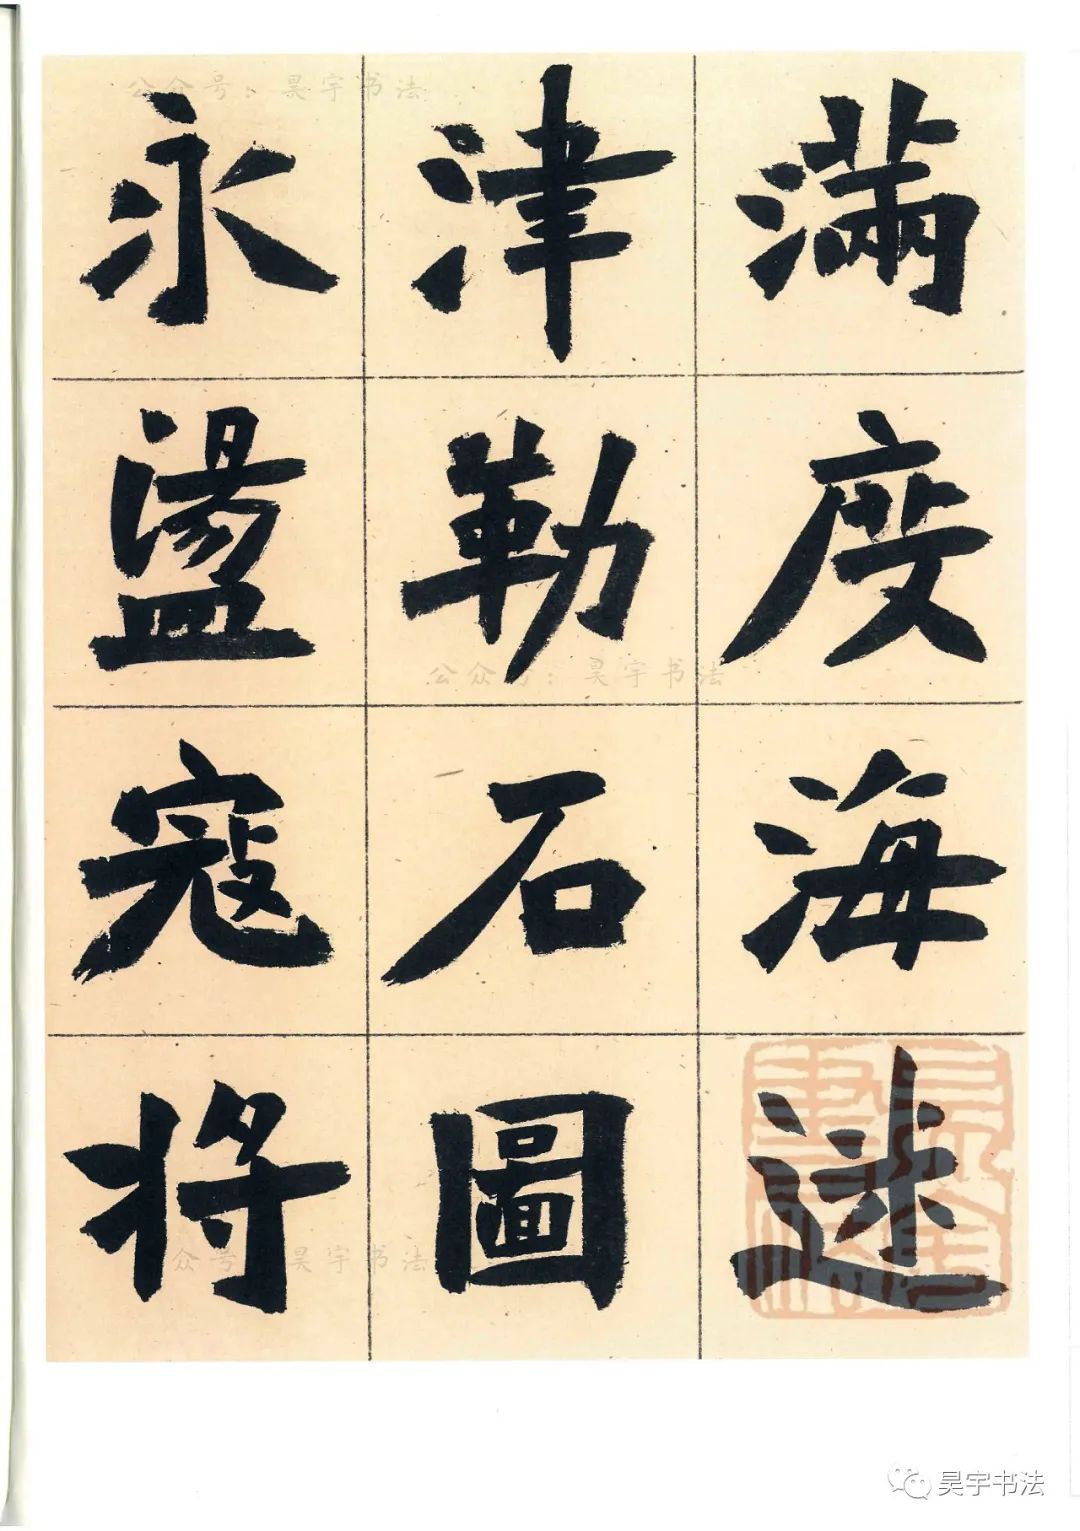 滿度海迷
津勒石圖
永盪寇將
公众号：昊宇书法
公众号：昊宇书法
众号 昊宇书法
昊宇书法